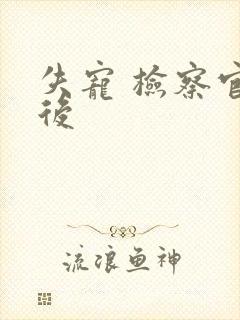 失寵 檢察官
後
流浪鱼神